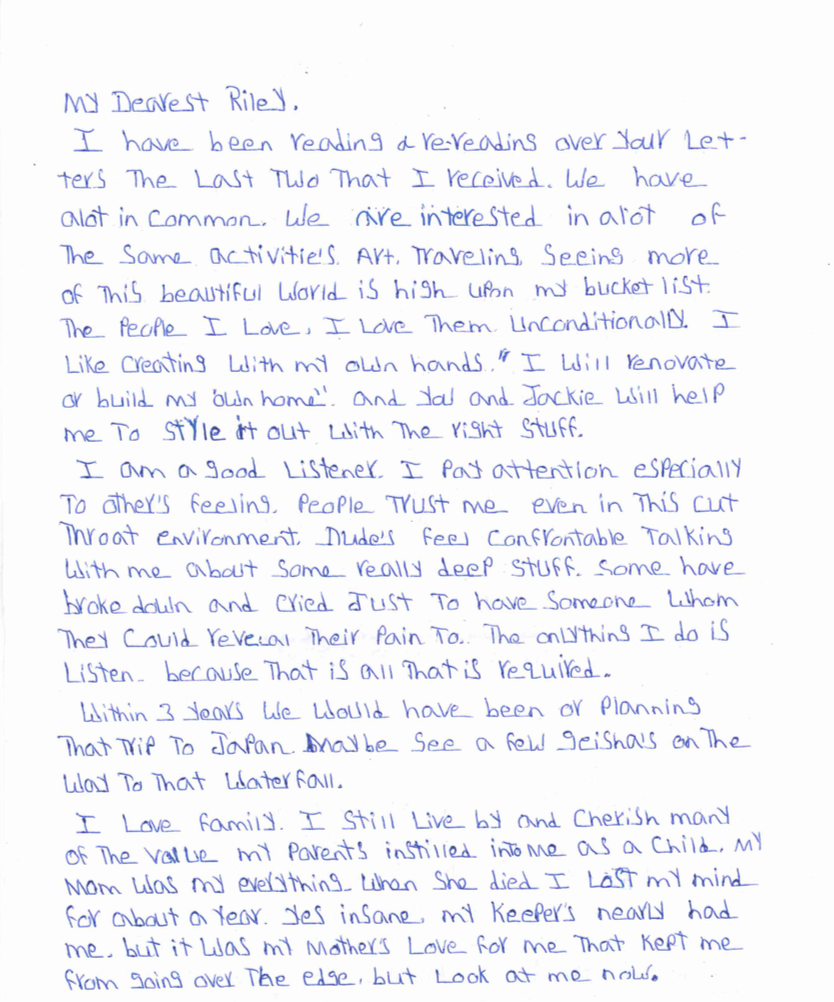 My Dearest Riley.
I have been reading & re-reading over your Let-
ters The Last Two That I received. We have
alot in Common. We are interested in alot of
The Same activitie's. Art, Traveling, Seeing more
of This beautiful World is high upon my bucket list.
The People I Love, I Love Them Unconditionally. I
Like Creating With my own hands. " I Will renovate
or build my own home". and you and Jackie Will help
me To Style it out With The right Stuff.
I am a good Listener. I Pay attention especially
To other's feeling. People Trust me even in This cut
Throat environment. Dude's feel Confrontable Talking
With me about Some really deep Stuff. Some have
broke down and cried Just To have Someone Whom
They Could reveal Their Pain To. The onlything I do is
Listen- because That is all That is required.
Within 3 years We Would have been or Planning
That Trip To Japan. Maybe See a few geisha's on The
Way To That Waterfall.
I Love family. I Still Live by and Cherish many
of The Value my Parents instilled into me as a Child. My
Mom Was my everything. When She died I Lost my mind
for about a Year. Yes insane, my Keeper's nearly had
me, but it Was my Mother's Love for me That Kept me
from going over The edge, but Look at me now.